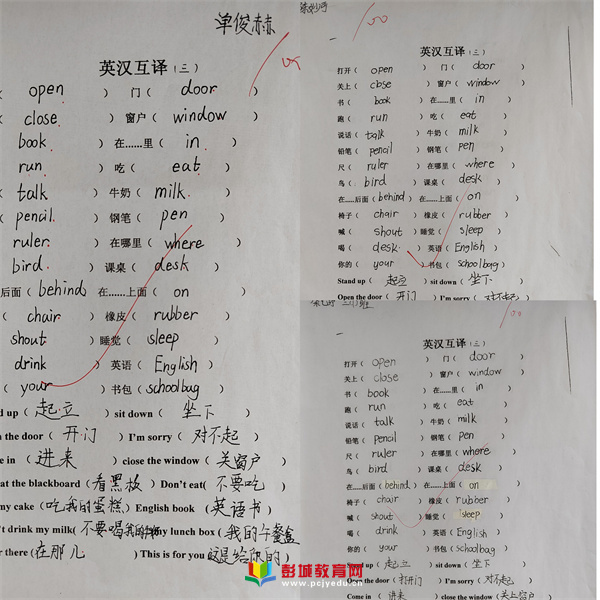 单俊赫
英汉互译（三）
open ） 门（ door ）
close ） 窗户（ window ）
book ） 在......里（ in ）
run ） 吃（ eat ）
talk ） 牛奶（ milk ）
pencil ） 钢笔（ pen ）
ruler ） 在哪里（ where ）
bird ） 课桌（ desk ）
后面（ behind ） 在......上面（ on ）
chair ） 橡皮（ rubber ）
shout ） 睡觉（ sleep ）
drink ） 英语（ English ）
your ） 书包（ schoolbag ）
d up（ 起立 ） sit down（ 坐下 ）
n the door（ 开门 ） I'm sorry（ 对不起 ）
e in（ 进来 ） close the window（ 关窗户 ）
at the blackboard（ 看黑板 ） Don't eat（ 不要吃 ）
my cake（ 吃我的蛋糕 ） English book（ 英语书 ）
't drink my milk（ 不要喝我的牛奶 ） my lunch box（ 我的午餐盒 ）
r there（ 在那儿 ） This is for you（ 这是给你的 ）
100
英汉互译（三）
打开（ open ） 门（ door ）
关上（ close ） 窗户（ window ）
书（ book ） 在......里（ in ）
跑（ run ） 吃（ eat ）
说话（ talk ） 牛奶（ milk ）
铅笔（ pencil ） 钢笔（ pen ）
尺（ ruler ） 在哪里（ where ）
鸟（ bird ） 课桌（ desk ）
在......后面（ behind ） 在......上面（ on ）
椅子（ chair ） 橡皮（ rubber ）
喊（ shout ） 睡觉（ sleep ）
喝（ desk ） 英语（ English ）
你的（ your ） 书包（ schoolbag ）
Stand up（ 起立 ） sit down（ 坐下 ）
Open the door（ 开门 ） I'm sorry（ 对不起 ）
100
英汉互译（三）
打开（ open ） 门（ door ）
关上（ close ） 窗户（ window ）
书（ book ） 在......里（ in ）
跑（ run ） 吃（ eat ）
说话（ talk ） 牛奶（ milk ）
铅笔（ pencil ） 钢笔（ pen ）
尺（ ruler ） 在哪里（ where ）
鸟（ bird ） 课桌（ desk ）
在......后面（ behind ） 在......上面（ on ）
椅子（ chair ） 橡皮（ rubber ）
喊（ shout ） 睡觉（ sleep ）
喝（ drink ） 英语（ English ）
你的（ your ） 书包（ schoolbag ）
Stand up（ 起立 ） sit down（ 坐下 ）
Open the door（ 打开门 ） I'm sorry（ 对不起 ）
Come in（ 进来 ） close the window（ 关上窗户
彭城教育网
www.pcjyedu.cn